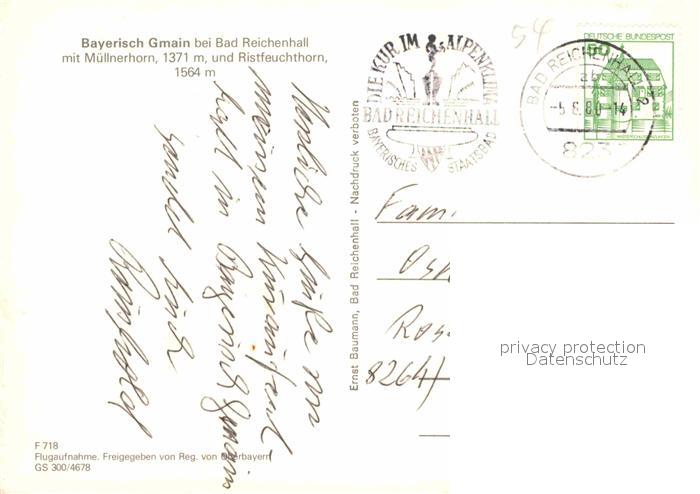 Bayerisch Gmain bei Bad Reichenhall
mit Müllnerhorn, 1371 m, und Ristfeuchthorn,
1564 m
54
DIE KUR IM ALPENKLIMA
BAD REICHENHALL
BAYERISCHES STAATSBAD
BAD REICHENHALL 2
-5.8.80-14
823
DEUTSCHE BUNDESPOST
50
WASSERSCHLOSS
Herzliche Grüße von
meinem Kuraufent-
halt in Bayerisch Gmain
sendet Euch
Ernst Baumann, Bad Reichenhall - Nachdruck verboten
Fam.
Ros
8264
privacy protection
Datenschutz
F 718
Flugaufnahme. Freigegeben von Reg. von Oberbayern
GS 300/4678